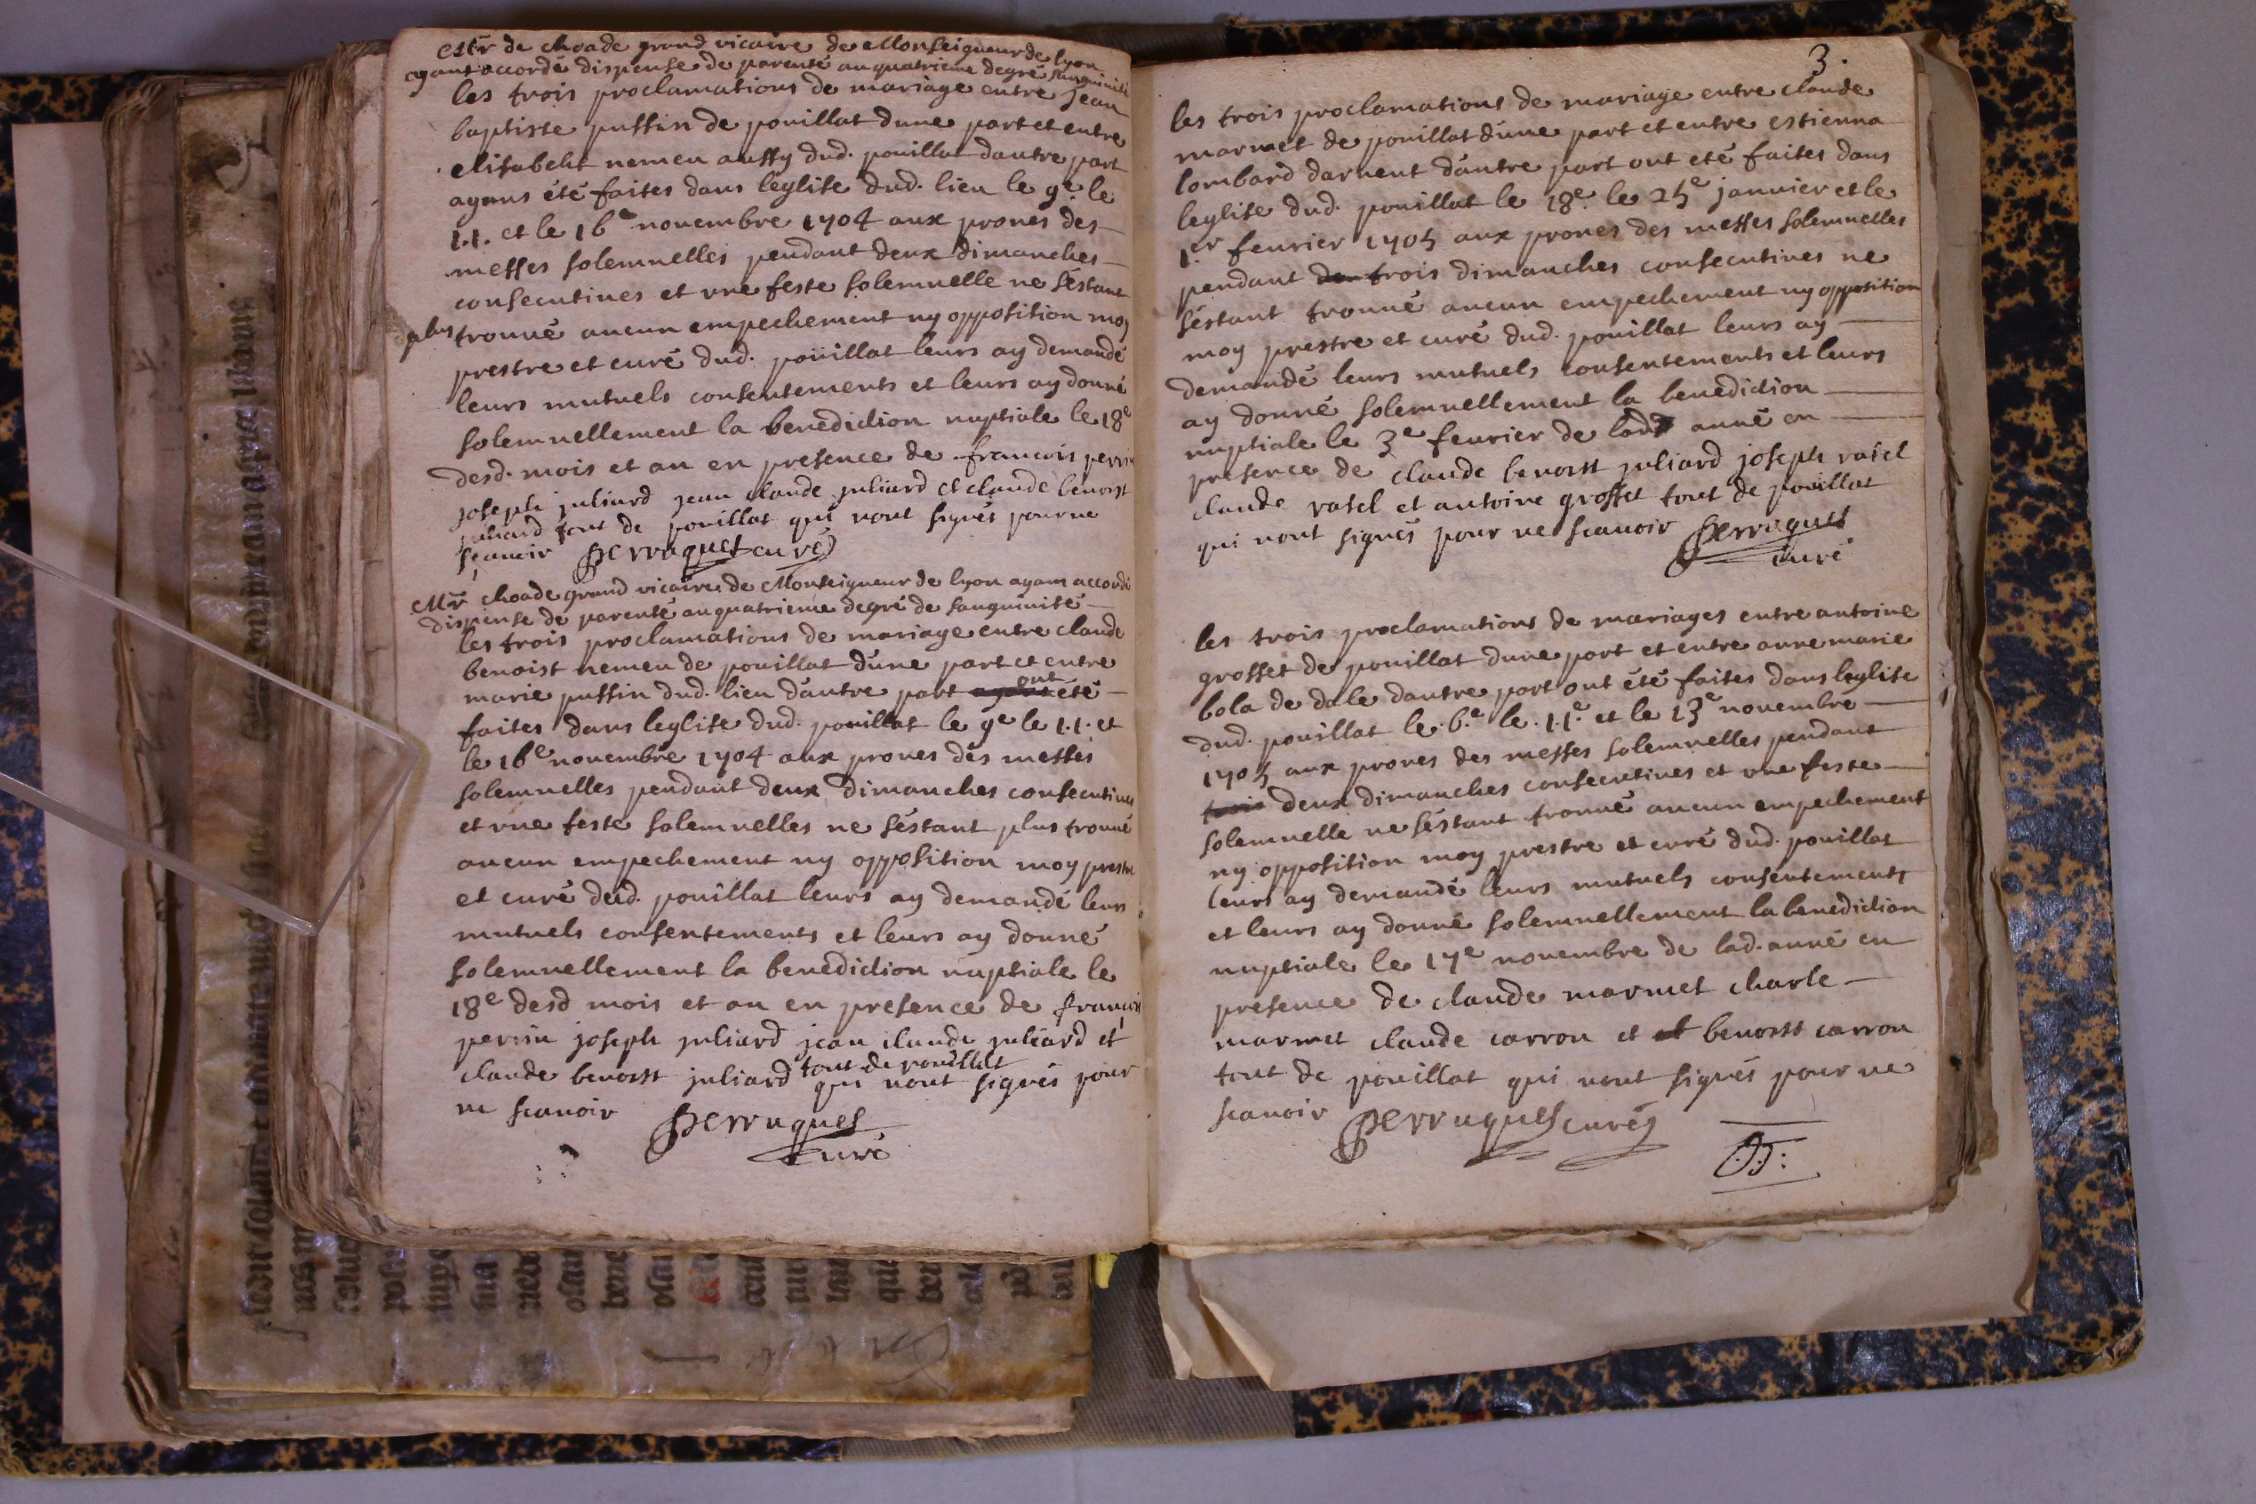 Mr de choade grand vicaire de Monseigneur de lyon
ayant accordé dispense de parenté au quatrieme degré sanguinité
les trois proclamations de mariage entre jean
baptiste puffin de pouillat dune part et entre
elisabeht nemeu aussy dud. pouillat dautre part
ayans été faites dans leglise dud. lieu le 9e. le
1.1. et le 16e novembre 1704 aux prones des
messes solemnelles pendant deux dimanches
consecutives et vne feste solemnelle ne séstant
plus trouué aucun empechement ny opposition moy
prestre et curé dud. pouillat leurs ay demandé
leurs mutuels consentements et leurs ay donné
solemnellement la benediction nuptiale le 18e
desd. mois et an en presence de francois perrin
joseph juliard jean claude juliard et claude benoist
juliard tout de pouillat qui nont signés pour ne
sçauoir Perruquet curé
Mr choade grand vicaire de Monseigneur de lyon ayant accordé
dispense de parenté au quatrieme degré de sanguinité
les trois proclamations de mariage entre claude
benoist nemeu de pouillat d'une part et entre
marie puffin dud. lieu d'autre part ont été
faites dans leglise dud. pouillat le 9e le 1.1. et
le 16e novembre 1704 aux prones des messes
solemnelles pendant deux dimanches consecutives
et vne feste solemnelles ne séstant plus trouué
aucun empechement ny opposition moy prestre
et curé dud. pouillat leurs ay demandé leurs
mutuels consentements et leurs ay donné
solemnellement la benediction nuptiale le
18e desd mois et an en presence de françois
perrin joseph juliard jean claude juliard et
claude benoist juliard tout de pouillat qui nont signés pour
ne scauoir Perruquet
curé
3.
les trois proclamations de mariage entre claude
marmet de pouillat d'une part et entre estienna
lombard darnent d'autre part ont eté faites dans
leglise dud. pouillat le 18e. le 25e janvier et le
1.er feurier 1705 aux prones des messes solemnelles
pendant deu trois dimanches consecutives ne
séstant trouué aucun empechement ny opposition
moy prestre et curé dud. pouillat leurs ay
demandé leurs mutuels consentements et leurs
ay donné solemnellement la benediction
nuptiale le 3e feurier de lad. anné en
presence de claude benoist juliard joseph ratel
claude ratel et antoine grosset tout de pouillat
qui nont signés pour ne scauoir Perruquet
curé
les trois proclamations de mariages entre antoine
grosset de pouillat dune part et entre anne marie
bola de dale dautre part ont été faites dans leglise
dud. pouillat le .6.e le .1.1e. et le 13e novembre
1705 aux prones des messes solemnelles pendant
trois deux dimanches consecutives et vne feste
solemnelle ne séstant trouué aucun empechement
ny opposition moy prestre et curé dud. pouillat
leurs ay demandé leurs mutuels consentements
et leurs ay donné solemnellement la benediction
nuptiale le 17e novembre de lad. anné en
presence de claude marmet charle
marmet claude carron et et benoist carron
tout de pouillat qui nont signés pour ne
scauoir Perruquet curé